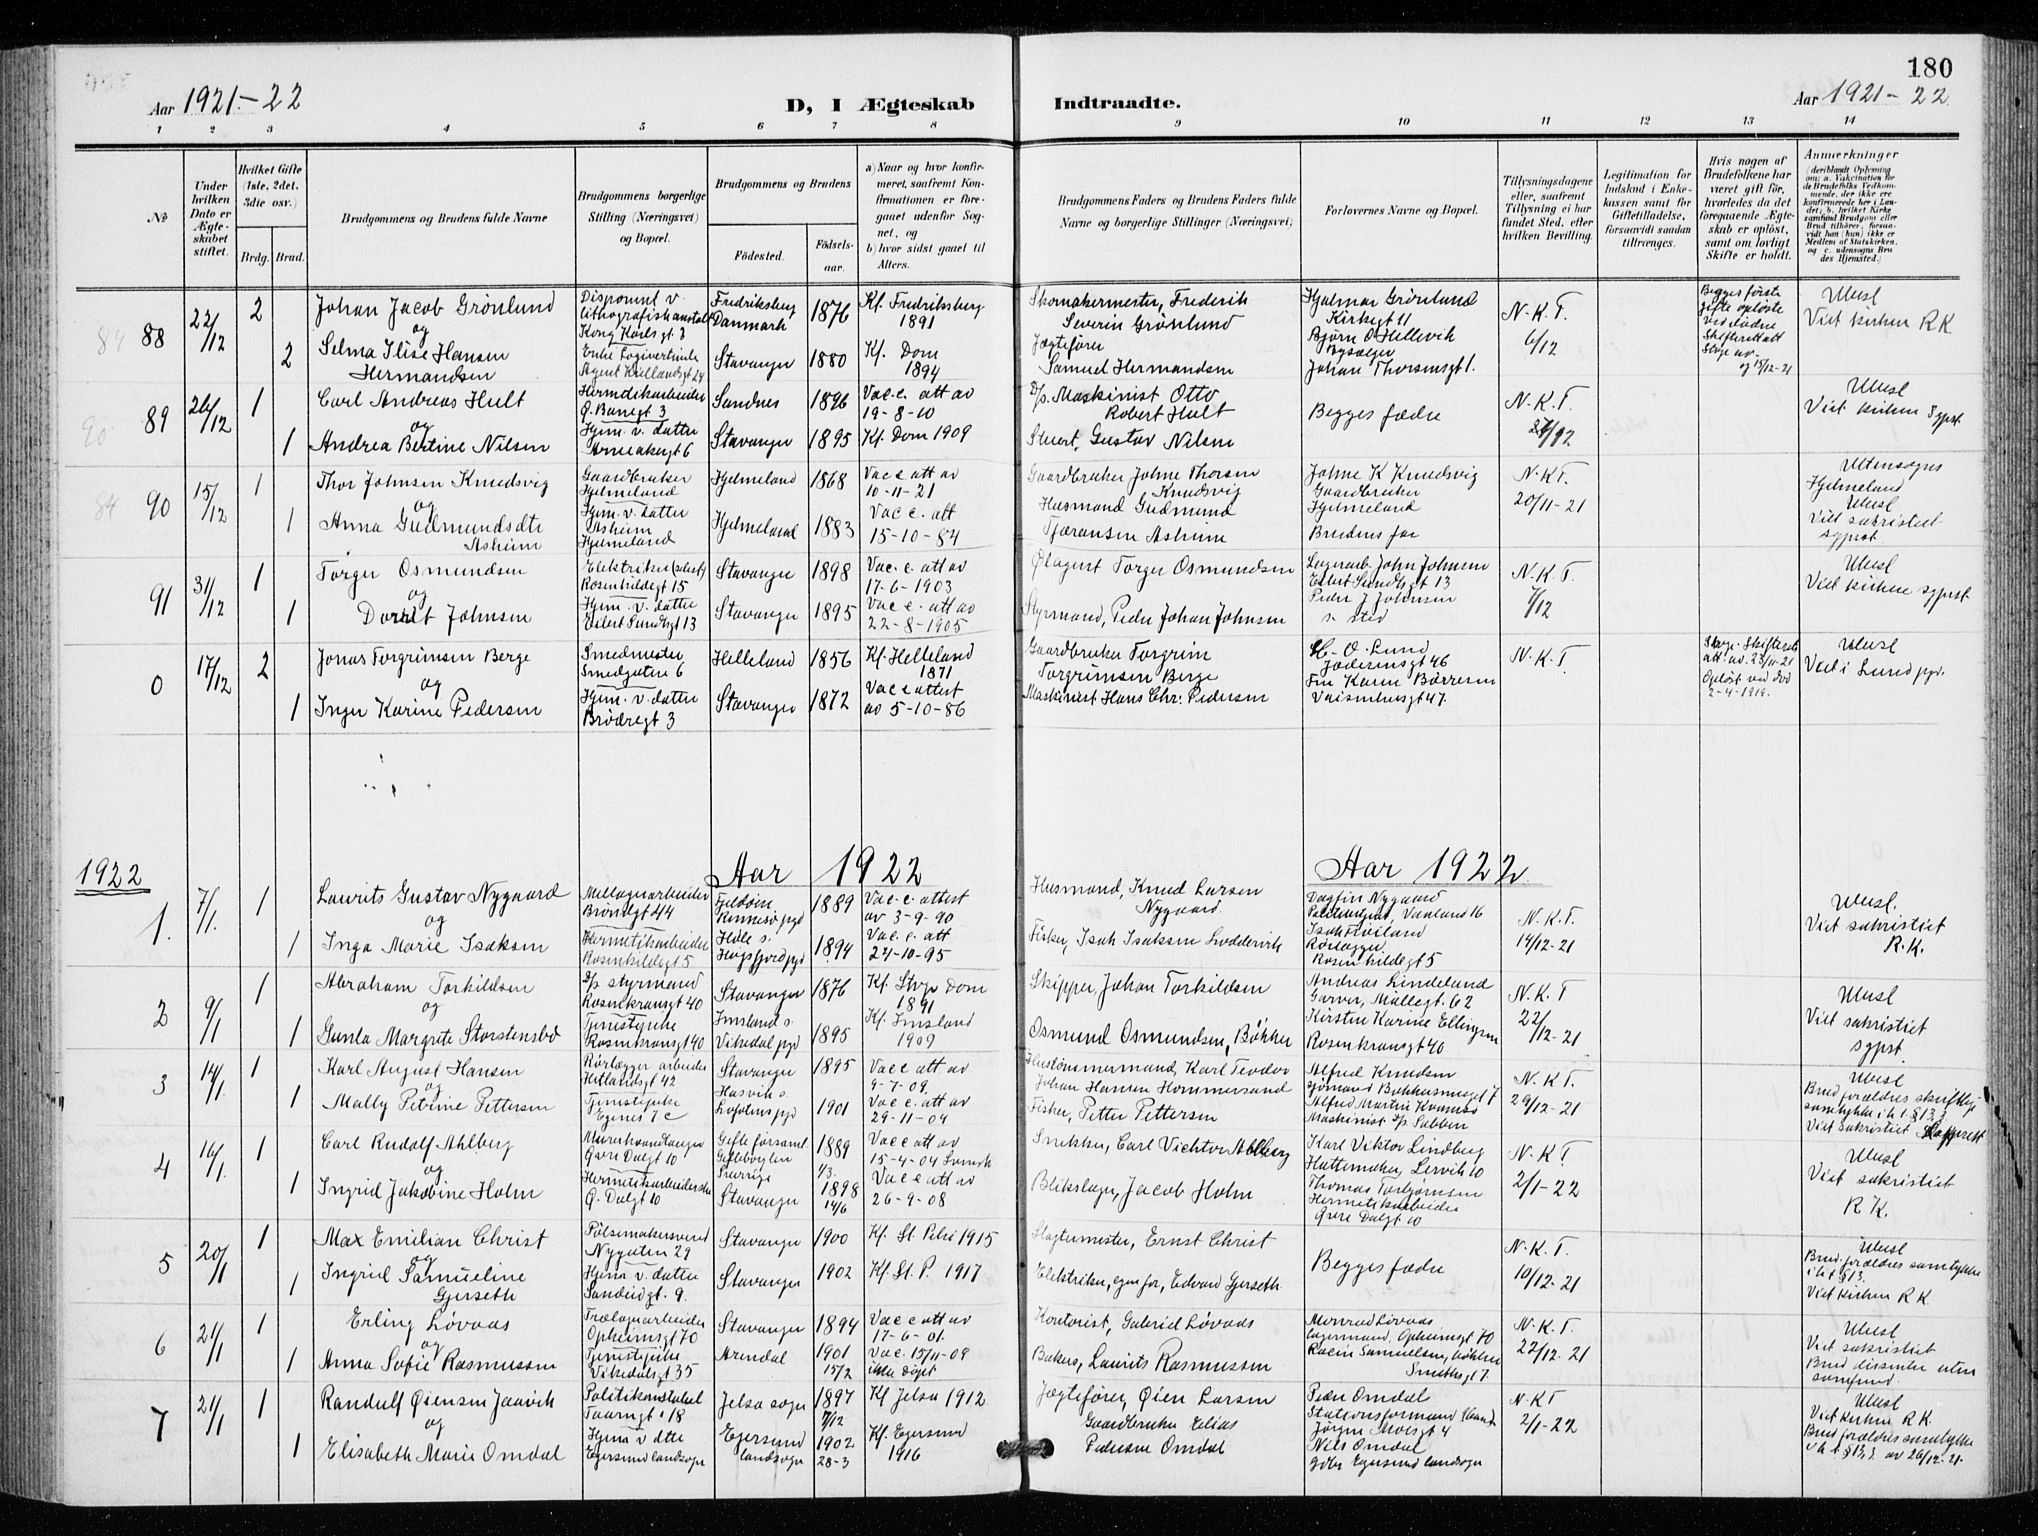 180
Aar 1921-22
D, I Ægteskab
Indtraadte.
Aar 1921-22
1 2 3 4 5 6 7 8 9 10 11 12 13 14
No
Under hvilken Dato er Ægteskabet stiftet.
Hvilket Gifte (1ste, 2det, 3die osv.)
Brdg. Brud.
Brudgommens og Brudens fulde Navne
Brudgommens borgerlige Stilling (Næringsvei) og Bopæl.
Brudgommens og Brudens
Födested.
Födselsaar.
a) Naar og hvor konfirmeret, saafremt Konfirmationen er foregaaet udenfor Sognet, og
b) hvor sidst gaaet til Alters.
Brudgommens Faders og Brudens Faders fulde Navne og borgerlige Stillinger (Næringsvei)
Forlovernes Navne og Bopæl.
Tillysningsdagene eller, saafremt Tillysning ei har fundet Sted, efter hvilken Bevilling.
Legitimation for Indskud i Enkekassen samt for Giftetilladelse, forsaavidt saadan tiltrænges.
Hvis nogen af Brudefolkene har været gift för, hvorledes da det foregaaende Ægteskab er oplöst, samt om lovligt Skifte er holdt.
Anmærkninger
88 22/12 2 Johan Jacob Grönlund
og
2 Selma Elise Hansen
Hermandsen
Kong Karls gt 3
Fredriksberg Danmark 1876 Kf. Fredriksberg 1891
Stavanger 1880 Kf. Dom 1894
Skomakermester, Frederik
Severin Grönlund
Jægtefører
Samuel Hermandsen
Hjalmar Grönlund
Kirkegt 11
Bjørn O Hellevik
Johan Thorsensgt 1.
N.K.T. 6/12
Begges første
Viet kirken RK
89 26/12 1 Carl Andreas Hult
og
1 Andrea Bertine Nilsen
Ø. Banegt 3
Hjem. v. datter
Sandnes 1896 Vac.c. att av 19-8-10
Stavanger 1895 Kf. Dom 1909
D/s. Maskinist Otto
Robert Hult
Stuert, Gustav Nilsen
Begges fædre
N.K.T.
Viet kirken Sypst.
90 15/12 1 Thor Johnsen Knudsvig
og
1 Anna Gudmundsdtr
Asheim
Gaardbruker
Hjelmeland
Hjem. v. datter
Asheim
Hjelmeland
Hjelmeland 1868 Vac c att av 10-11-21
Hjelmeland 1883 Vac c. att 15-10-84
Gaardbruker Johne Thorsen
Knudsvig
Husmand Gudmund
Tjøransen Asheim
Johne K Knudsvig
Gaardbruker
Hjelmeland
Brudens far
N.K.T. 20/11-21
Utensogns
Hjelmeland
Viet sakristiet
sypst
91 31/12 1 Torger Osmundsen
og
1 Dorthe Johnsen
Rosenkildegt 15
Hjem. v. datter
Eilert Sundtsgt 13
Stavanger 1898 Vac. c. att av 17-6-1903
Stavanger 1895 Vac c. att av 22-8-1905
Torger Osmundsen
Styrmand, Peder Johan Johnsen
Lagerarb. John Johnsen
Eilert Sundtsgt 13
Peder J Johnsen
s. sted
N.K.T. 7/12
Viet kirken sypst.
0 17/12 2 Jonas Torgrimsen Berge
og
1 Inger Karine Pedersen
Smedmester
Smedgaten 6
Hjem. v. datter
Brødregt 3
Helleland 1856 Kf. Helleland 1871
Stavanger 1872 Vac c attest av 5-10-86
Gaardbruker Torgrim
Torgrimsen Berge
Maskinist Hans Chr. Pedersen
O. Lund
Jæderensgt 46
Fru Karen Börresen
Vaisenhusgt 47.
N.K.T
att. av. 23/11-21
Opløst ved død
2-4-1919.
Viet i Lund pgd.
1922
Aar 1922
Aar 1922
1. 7/1. 1 Laurits Gustav Nygaard
og
1 Inga Marie Isaksen
Brøndgt 44
Hermetikarbeider
Rosenkildegt 5
Fjeldøen Rennesø pgd 1889 Vac.c. attest av 3-9-90
Høle s. Høgsfjord pgd 1894 Vac. c. att 24-10-95
Husmand, Knud Larsen
Nygaard.
Fisker, Isak Isaksen
Dagfin Nygaard
Rørlægger
Rosenkildegt 5
N.K.T. 14/12-21
Viet sakristiet
R.K.
2 9/1 1 Abraham Torkildsen
og
1 Gunla Margrete Storstensbø
D/s styrmand
Rosenkransgt 40
Tjenestepike
Rosenkransgt 40
Stavanger 1876 Kf. Dom 1891
Imsland s. Vikedal pgd 1895 Kf. Imsland 1909
Skipper, Johan Torkildsen
Osmund Osmundsen, Bökker
Andreas Lindeland
Garver, Møllegt. 62
Kirsten Karine Ellingsen
Rosenkransgt 40
N.K.T 22/12-21
Viet sakristiet
sypst.
3 14/1. 1 Karl August Hansen
og
1 Mally Petrine Pettersen
Rørlægger arbeider
Hetlandsgt 42
Tjenestepike
Egenes 7 c
Stavanger 1895 Vac c att av 9-7-09
Hasvik s. 1901 Vac c. att av 29-11-04
Hustømmermand, Karl Teodor
Johan Hansen Hommersand
Fisker, Petter Pettersen
Alfred Knudsen
Alfred Martin
Maskinist D/s
N.K.T. 29/12-21
Brud. forældres skriftlige
samtykke i h.t. § 13,3
Viet sakristiet
4 14/1. 1 Carl Rudolf Ahlberg
og
1 Ingrid Jakobine Holm
Øvre Dalgt 10
Ø. Dalgt 10
Sverrige
1889 1/3. Vac c att av 15-4-04 Svensk
Stavanger 1898 14/6 Vac c att av 26-9-08
Snekker, Carl Vichtor Ahlberg
Blikslager, Jacob Holm
Karl Viktor Lindberg
Hattemaker, Lervik 10
Thomas Torbjørnsen
Hermetikarbeider
Øvre Dalgt 10
N.K.T. 2/1-22
Viet sakristiet
R K.
5 20/1 1 Max Emilian Christ
og
1 Ingrid Samueline
Gjerseth
Pölsemakersvend
Nygaten 29
Hjem v. datter
Sandeidgt. 9.
Stavanger 1900 Kf. St. Petri 1915
Stavanger 1902 Kf St. P. 1917
Slagtermester, Ernst Christ
Elektriker, Edvard Gjerseth
Begges fædre
N.K.T. 10/12-21
Brud. forældres samtykke
i h t § 13.
Viet kirken R K.
6 21/1 1 Erling Lövaas
og
1 Anna Sofie Rasmussen
Opheimsgt 70
Tjenestepike
Vikedalsgt 35
Stavanger 1894 Vac c att av 17-6-01.
Arendal 1901 15/2 Vac. 15/11-09 ikke döpt
Kontorist, Gabriel Lövaas
Baker, Laurits Rasmussen
Monrad Lövaas
Lagermand, Opheimsgt 70
N.K.T. 22/12-21
Viet sakristiet
Brud dissenter uten
samfund.
7 21/1 1 Randulf Øiensen Jaavik
og
1 Elisabeth Marie Omdal
Politikonstabel
Hjem v dtr
Egersund landsogn
Jelsa sogn 1897 7/12 Kf Jelsa 1912
Egersund landsogn 1902 28-3 Kf. Egersund 1916
Jægtefører, Øien Larsen
Gaardbruker Elias
Pedersen Omdal
Peder Omdal
Nils Omdal
Egersund landsogn
N.K.T 2/1-22
Viet kirken R K.
Brud forældres samtykke
i h t § 13,3. av 26/12-21.